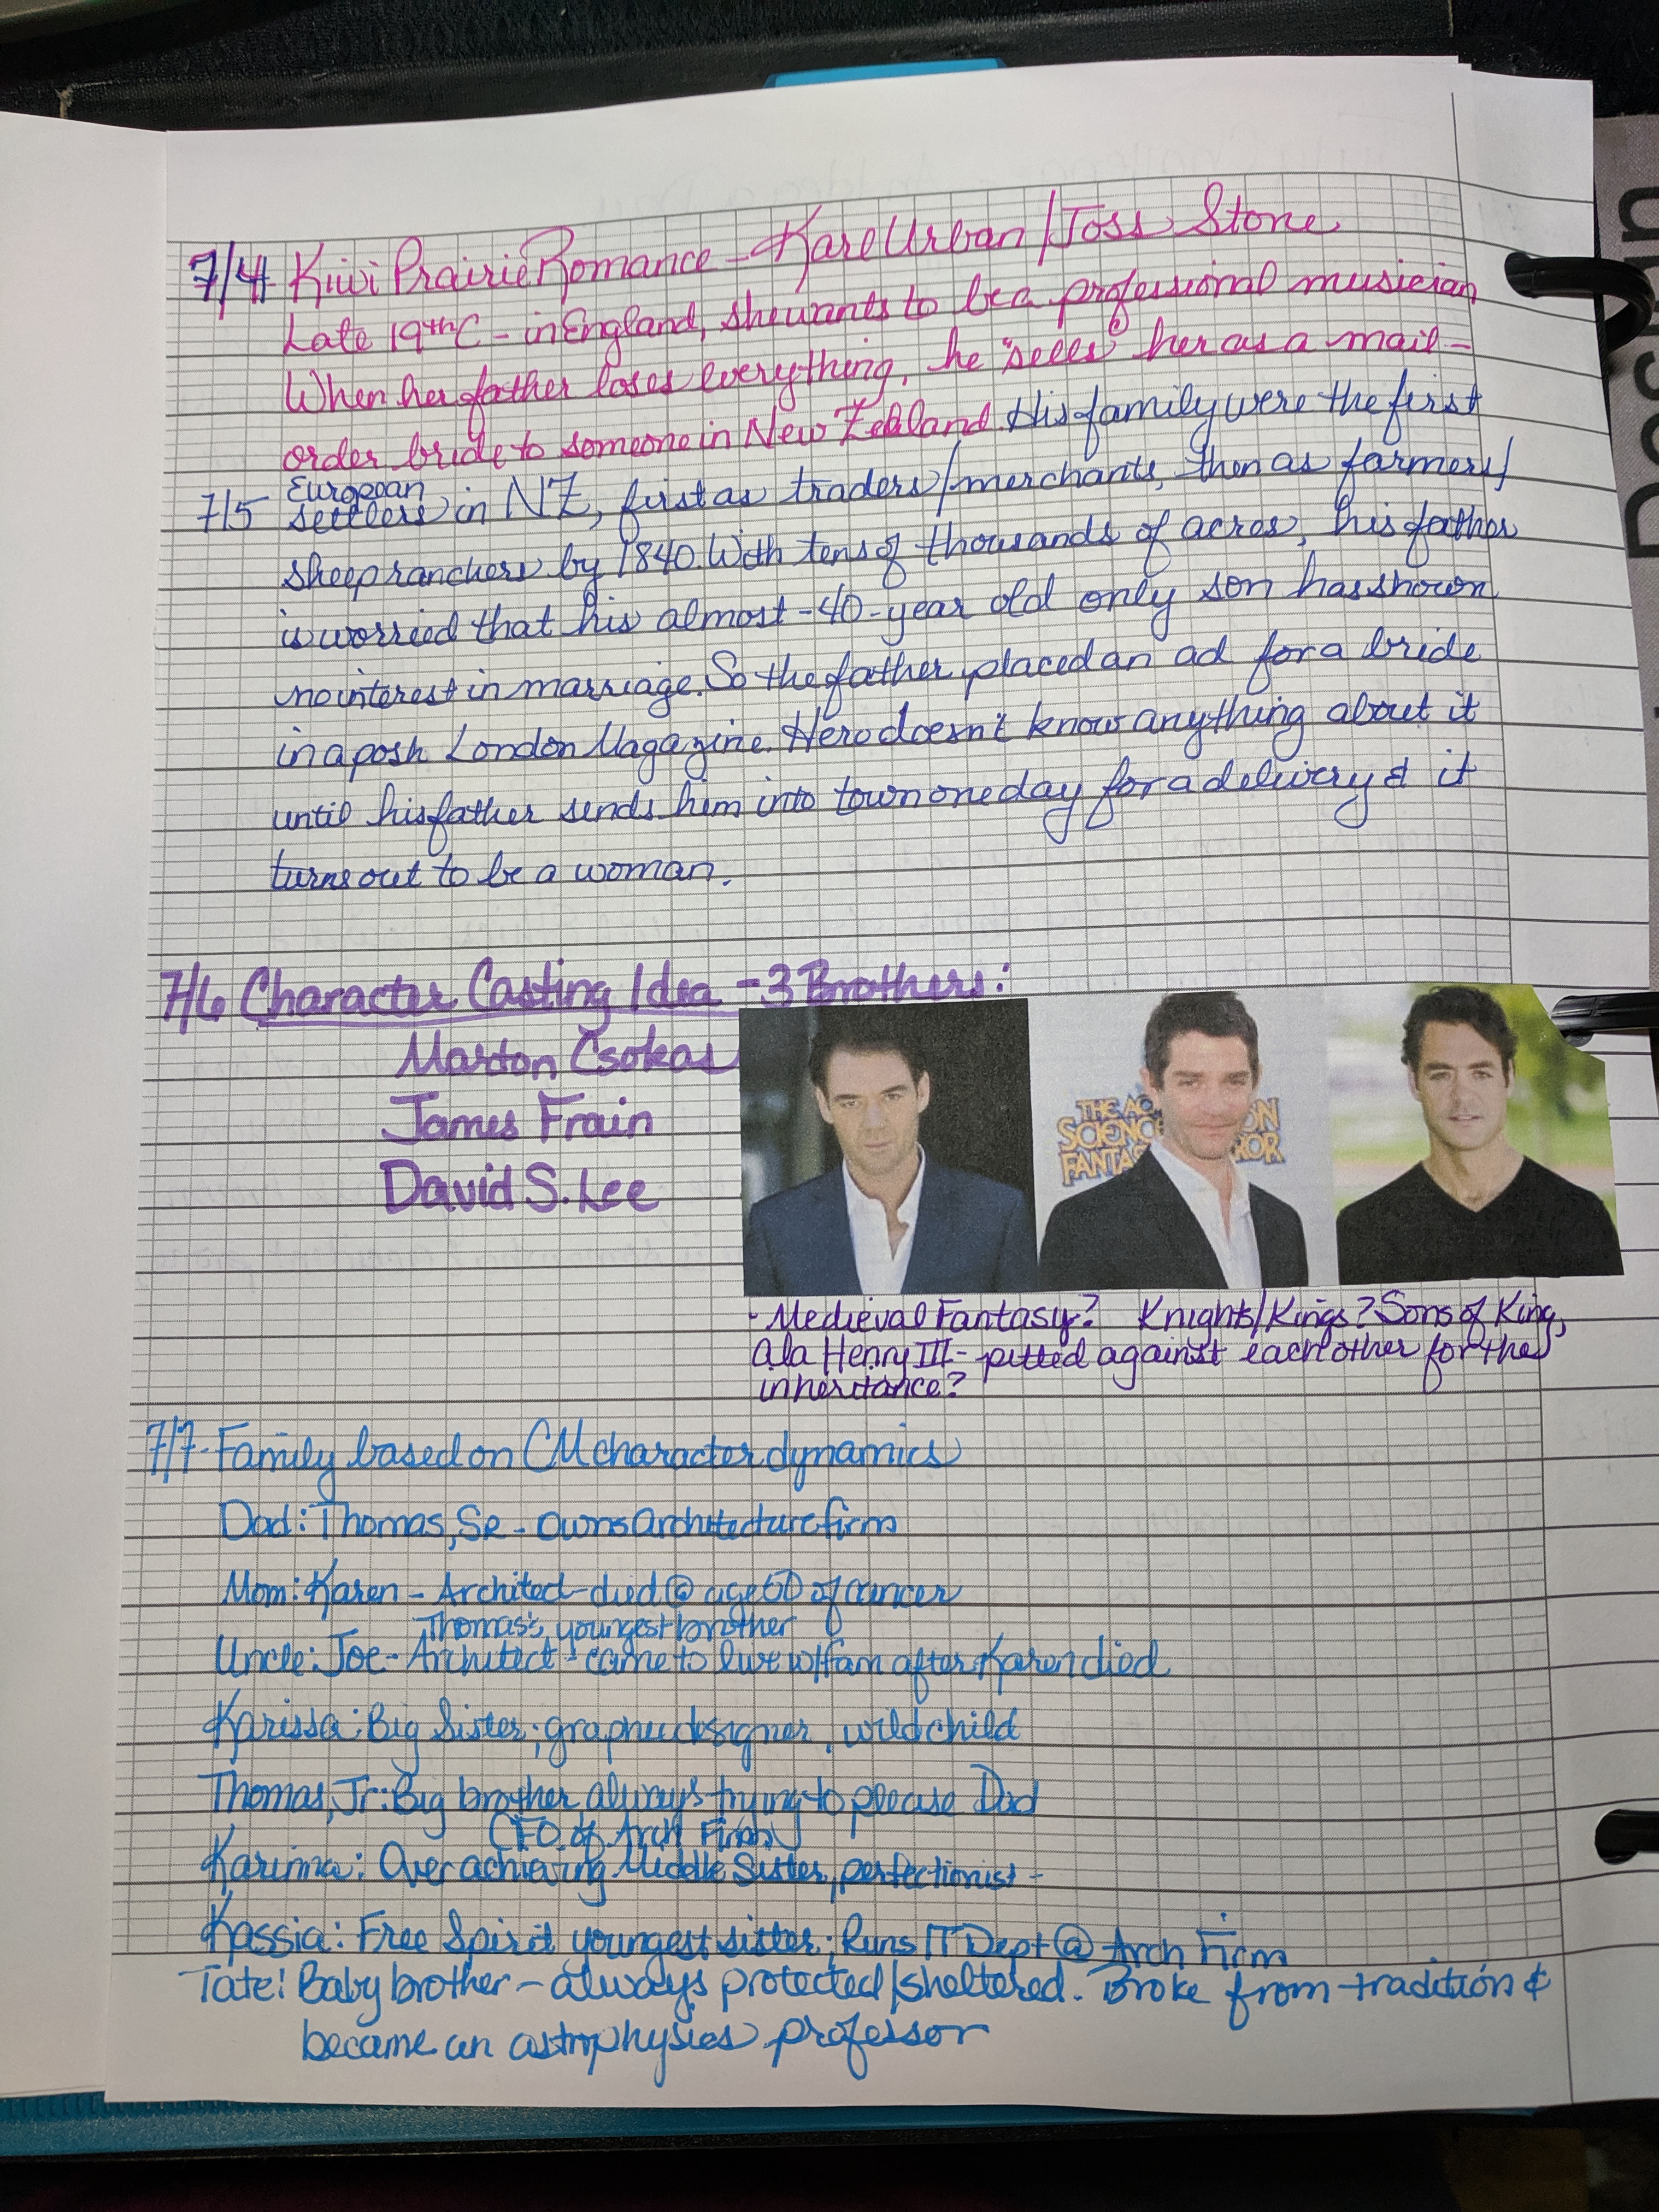 7/4 Kiwi Prairie Romance - Karl Urban/Joss Stone
Late 19th C - in England, she wants to be a professional musician
When her father loses everything, he "sells" her as a mail-
order bride to someone in New Zealand. His family were the first
European
7/5 settlers in NZ, first as traders/merchants, then as farmers/
sheep ranchers by 1840. With tens of thousands of acres, his father
is worried that his almost-40-year old only son has shown
no interest in marriage. So the father placed an ad for a bride
in a posh London Magazine. Hero doesn't know anything about it
until his father sends him into town one day for a delivery & it
turns out to be a woman.
7/6 Character Casting Idea - 3 Brothers:
Marton Csokas
James Frain
David S. Lee
THE AC
SCIENC ON
FANTA ROR
- Medieval Fantasy? Knights/Kings? Sons of King,
ala Henry III - pitted against each other for the
inheritance?
7/7 - Family based on CM character dynamics
Dad: Thomas, Sr - owns architecture firm
Mom: Karen - Architect - died @ age 50 of cancer
Thomas's youngest brother
Uncle: Joe - Architect - came to live w/ fam after Karen died
Karissa: Big Sister; graphic designer, wild child
Thomas, Jr: Big brother always trying to please Dad
CFO of Arch Firm
Karinna: Over achieving Middle Sister, perfectionist -
Kassia: Free Spirit youngest sister; Runs IT Dept @ Arch Firm
Tate: Baby brother - always protected/sheltered. Broke from tradition &
became an astrophysics professor
Design